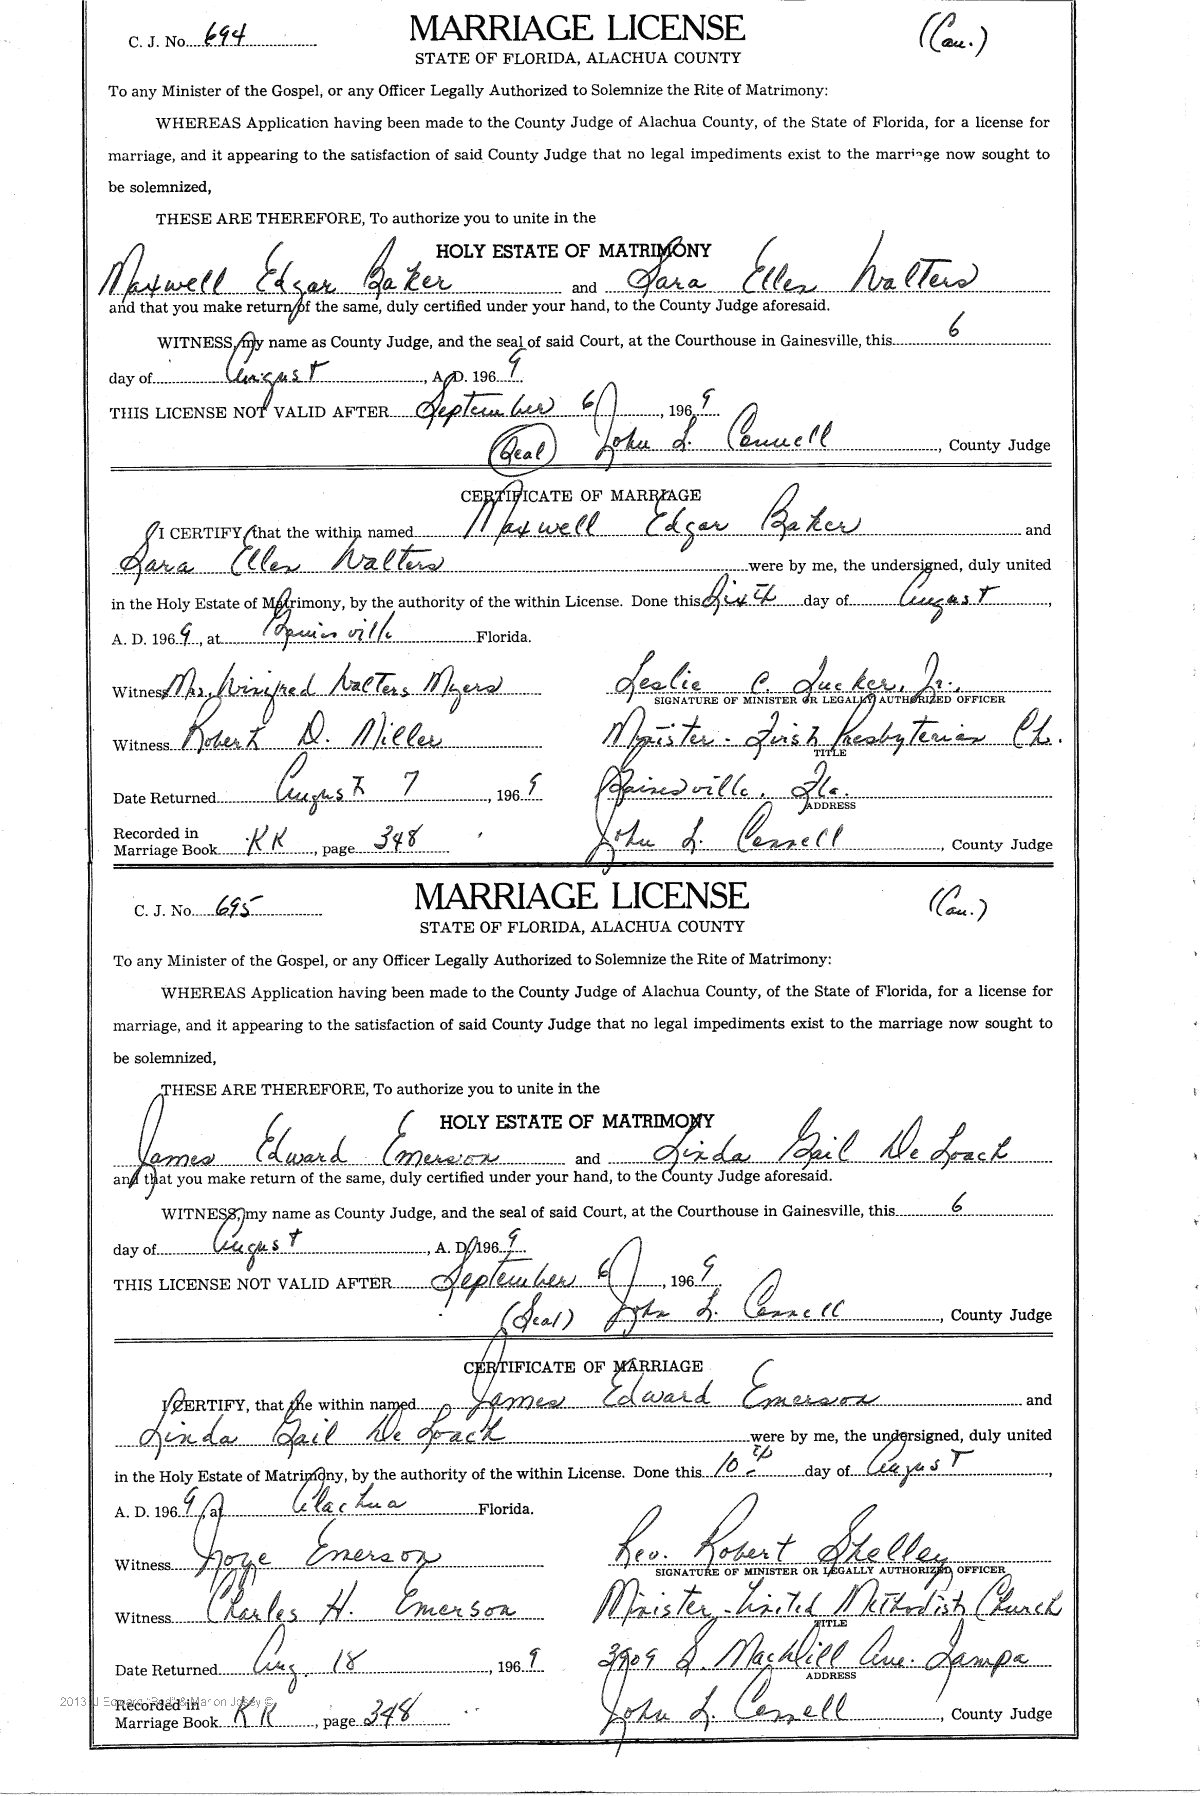 C. J. No. 694
MARRIAGE LICENSE
(Cau.)
STATE OF FLORIDA, ALACHUA COUNTY
To any Minister of the Gospel, or any Officer Legally Authorized to Solemnize the Rite of Matrimony:
WHEREAS Application having been made to the County Judge of Alachua County, of the State of Florida, for a license for
marriage, and it appearing to the satisfaction of said County Judge that no legal impediments exist to the marriage now sought to
be solemnized,
THESE ARE THEREFORE, To authorize you to unite in the
HOLY ESTATE OF MATRIMONY
Maxwell Edgar Baker and Sara Ellen Walters
and that you make return of the same, duly certified under your hand, to the County Judge aforesaid.
WITNESS, my name as County Judge, and the seal of said Court, at the Courthouse in Gainesville, this 6
day of August, A. D. 1969
THIS LICENSE NOT VALID AFTER September 6, 1969
(Seal) John L. Connell, County Judge
CERTIFICATE OF MARRIAGE
I CERTIFY, that the within named Maxwell Edgar Baker and
Sara Ellen Walters were by me, the undersigned, duly united
in the Holy Estate of Matrimony, by the authority of the within License. Done this Sixth day of August,
A. D. 1969, at Gainesville Florida.
Witness Mrs. Winifred Walters Myers
Leslie C. Tucker, Jr.,
SIGNATURE OF MINISTER OR LEGALLY AUTHORIZED OFFICER
Witness Robert D. Miller
Minister - First Presbyterian Ch.
TITLE
Date Returned August 7, 1969
Gainesville, Fla.
ADDRESS
Recorded in
Marriage Book KK, page 348
John L. Connell, County Judge
C. J. No. 695
MARRIAGE LICENSE
(Cau.)
STATE OF FLORIDA, ALACHUA COUNTY
To any Minister of the Gospel, or any Officer Legally Authorized to Solemnize the Rite of Matrimony:
WHEREAS Application having been made to the County Judge of Alachua County, of the State of Florida, for a license for
marriage, and it appearing to the satisfaction of said County Judge that no legal impediments exist to the marriage now sought to
be solemnized,
THESE ARE THEREFORE, To authorize you to unite in the
HOLY ESTATE OF MATRIMONY
James Edward Emerson and Linda Gail De Loach
and that you make return of the same, duly certified under your hand, to the County Judge aforesaid.
WITNESS, my name as County Judge, and the seal of said Court, at the Courthouse in Gainesville, this 6
day of August, A. D. 1969
THIS LICENSE NOT VALID AFTER September 6, 1969
(Seal) John L. Connell, County Judge
CERTIFICATE OF MARRIAGE
I CERTIFY, that the within named James Edward Emerson and
Linda Gail De Loach were by me, the undersigned, duly united
in the Holy Estate of Matrimony, by the authority of the within License. Done this 10th day of August,
A. D. 1969, at Alachua Florida.
Witness Emerson
Rev. Robert Shelley
SIGNATURE OF MINISTER OR LEGALLY AUTHORIZED OFFICER
Witness Charles H. Emerson
Minister - United Methodist Church
TITLE
Date Returned Aug. 18, 1969
3909 S. MacDill Ave. Tampa
ADDRESS
Recorded in
Marriage Book KK, page 348
John L. Connell, County Judge
2013 J Edward "Bud" & Marion Josey ©